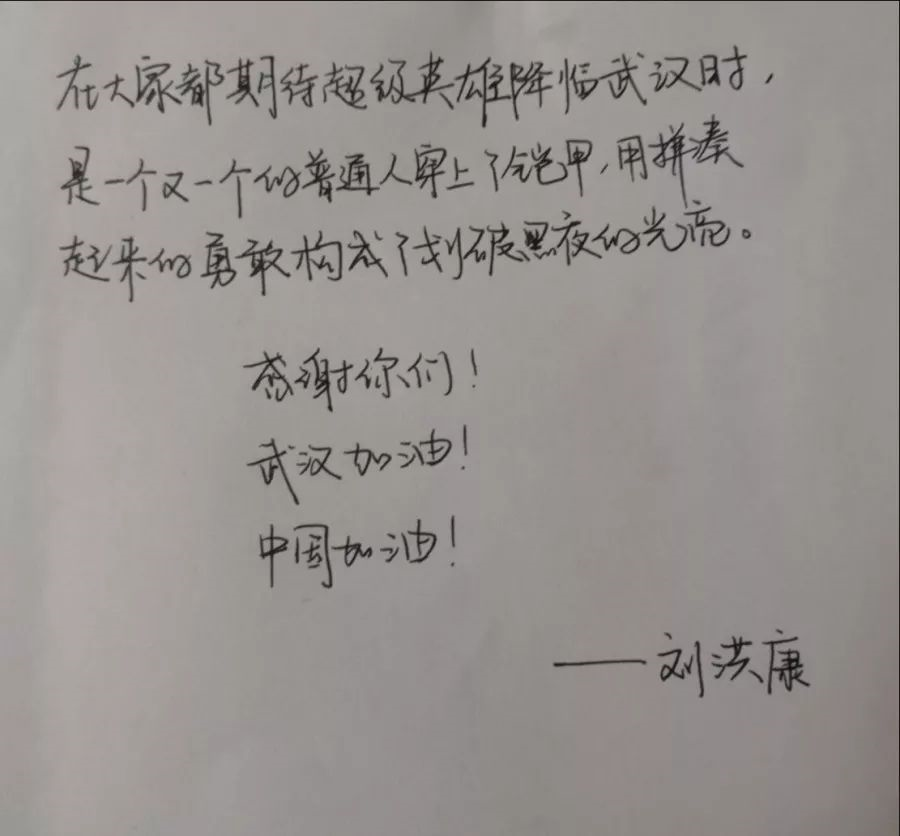 在大家都期待超级英雄降临武汉时，
是一个又一个的普通人穿上了铠甲，用拼凑
起来的勇敢构成了划破黑夜的光亮。
感谢你们！
武汉加油！
中国加油！
——刘洪康